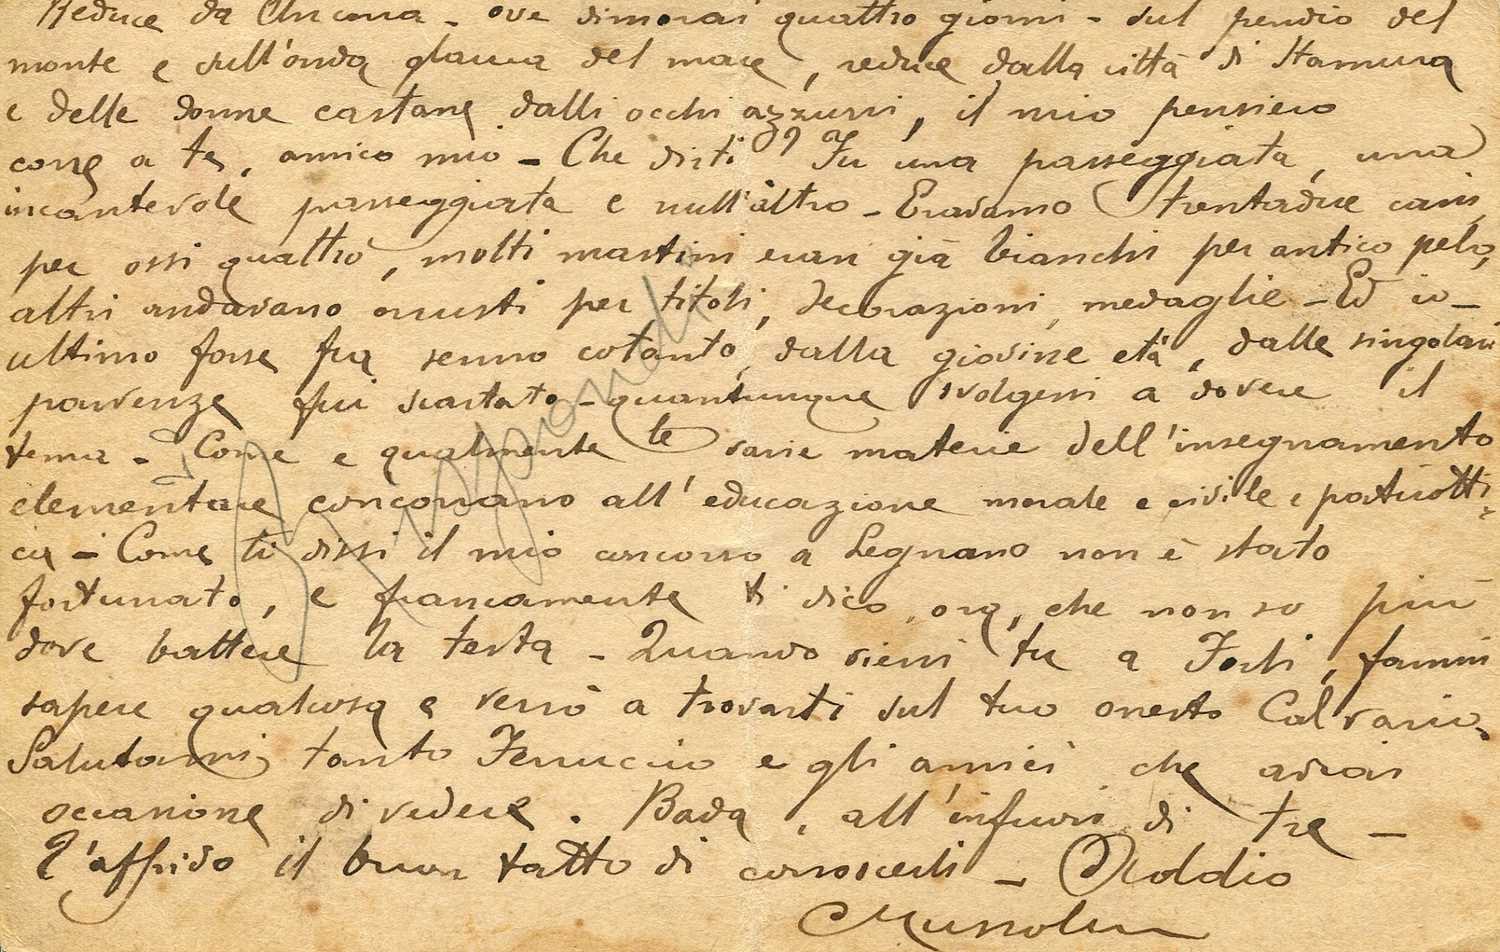 Reduce da Ancona - ove dimorai quattro giorni - sul pendio del
monte e sull'onda glauca del mare, reduce dalla città di Stamura
e delle donne castane dalli occhi azzurri, il mio pensiero
corre a te, amico mio - Che dirti? Fu una passeggiata, una
incantevole passeggiata e null'altro - Eravamo trentadue cani
per ossi quattro, molti mastini eran già bianchi per antico pelo,
altri andavano onusti per titoli, decorazioni, medaglie - Ed io -
ultimo forse fra senno cotanto, dalla giovine età, dalle singolari
parvenze fui scartato - quantunque svolgessi a dovere il
tema - Come e qualmente le varie materie dell'insegnamento
elementare concorrano all'educazione morale e civile e patriotti-
ca - Come ti dissi il mio concorso a Legnano non è stato
fortunato, e francamente ti dico, ora, che non so più
dove battere la testa - Quando vieni tu a Forlì, fammi
sapere qualcosa e verrò a trovarti sul tuo onesto Calvario.
Salutami tanto Ferruccio e gli amici che avrai
occasione di vedere. Bada, all'infuori di tre -
T'affido il buon tatto di conoscerli - Addio
Mussolini
Rispondi